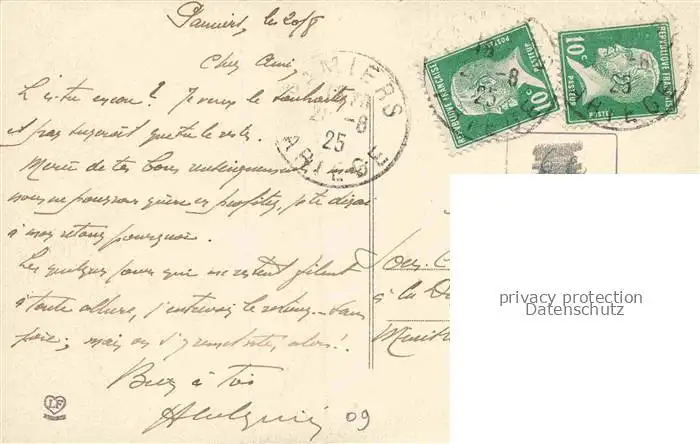 Pamiers, le 20/8
Cher Ami,
L'es-tu encore? Je veux le souhaiter
et pas
Merci de tes bons renseignements, mais
nous ne pourrons guère en profiter, je te dirai
à mon retour pourquoi.
Les quelques jours qui me restent filent
à toute allure, j'entrevois le retour sans
joie; mais on s'y remet vite, alors!
Bien à toi
09
LF
PAMIERS
-8
25
ARIEGE
REPUBLIQUE FRANÇAISE
POSTES
PASTEUR
10c
REPUBLIQUE FRANÇAISE
10c
PASTEUR
-8
25
ARIEGE
à la
privacy protection
Datenschutz